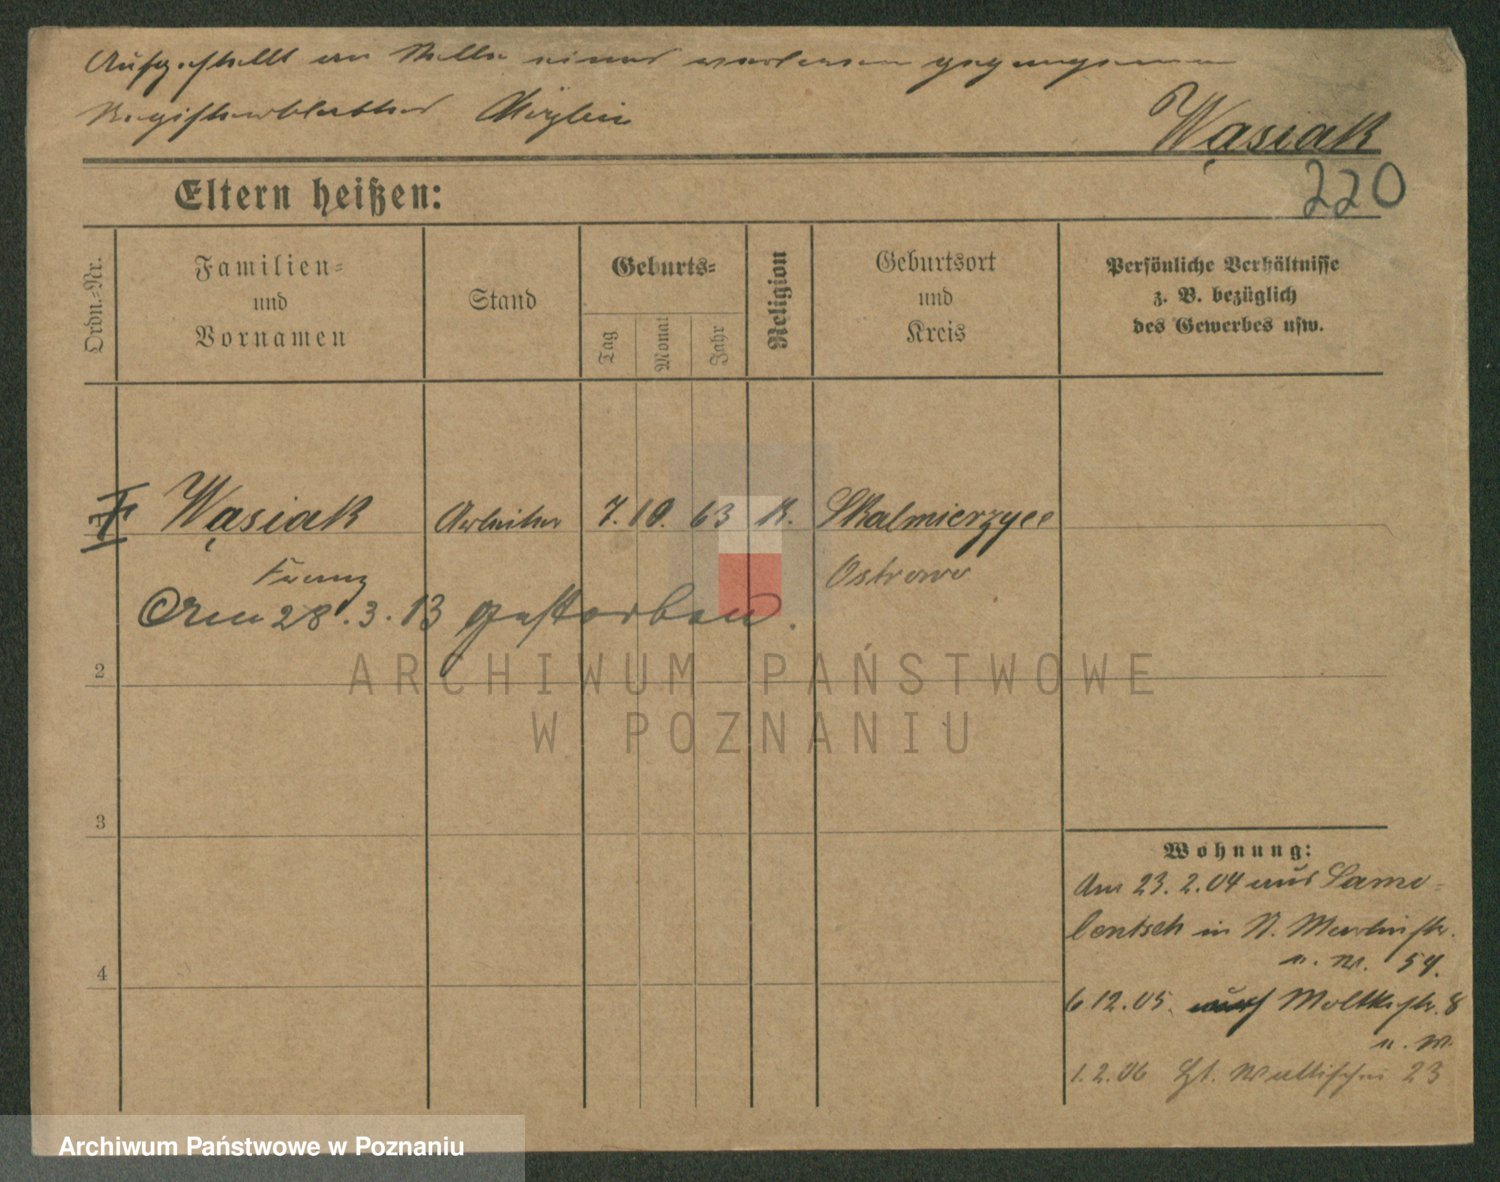 Aufgestellt an Stelle eines verloren gegangenen
Registerblattes
Wąsiak
220
Eltern heißen:
Ordn.-Nr.
Familien-
und
Vornamen
Stand
Geburts-
Tag
Monat
Jahr
Religion
Geburtsort
und
Kreis
Persönliche Verhältnisse
z. B. bezüglich
des Gewerbes usw.
Wąsiak Arbeiter 7. 10. 63 K. Skalmierzyce
Franz Ostrowo
Am 28.3.13 gestorben.
2
3
4
Wohnung:
Am 23.2.04 aus Lame-
bentsch in St. Martinstr.
n. W. 54.
6.12.05. Moltkestr. 8
n. W.
1.2.06 Wallischei 23
ARCHIWUM PAŃSTWOWE
W POZNANIU
Archiwum Państwowe w Poznaniu